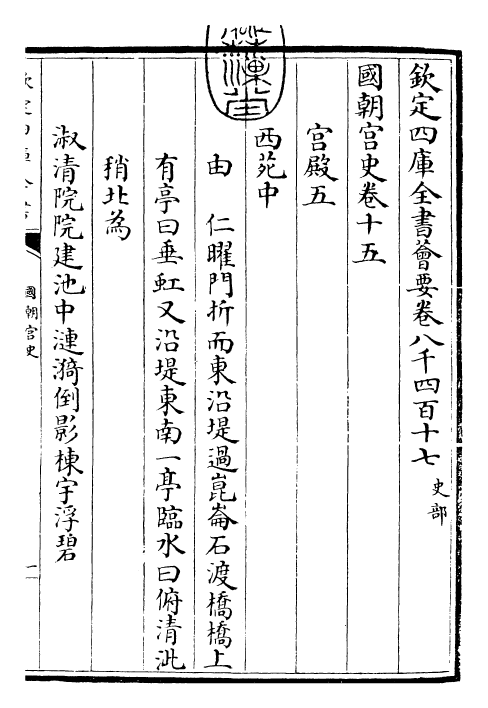 欽定四庫全書薈要卷八千四百十七
史部
國朝宮史卷十五
宮殿五
西苑中
由 仁曜門折而東沿堤過崑崙石渡橋橋上
有亭曰垂虹又沿堤東南一亭臨水曰俯清泚
稍北為
淑清院院建池中漣漪倒影棟宇浮碧
國朝宮史
一